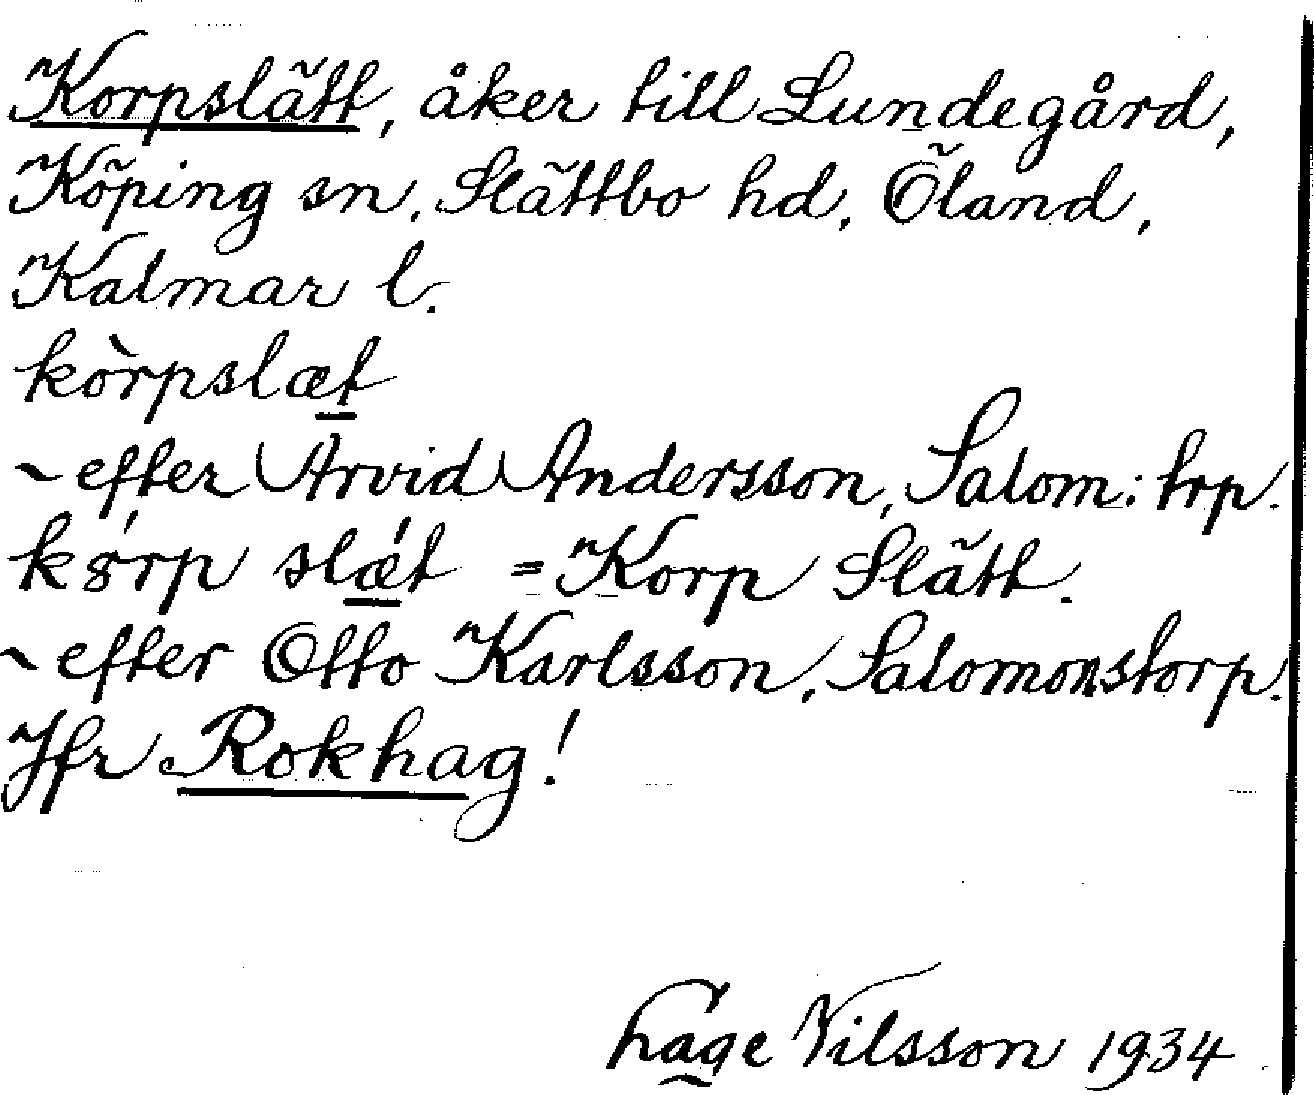 Korpslätt, åker till Lundegård,
Köping sn, Slättbo hd, Öland,
Kalmar l.
kòrpslæt
~ efter Arvid Andersson, Salom: trp.
kórp slǽt = Korp Slätt.
~ efter Otto Karlsson, Salomonstorp.
Jfr Rokhag!
Hage Nilsson 1934